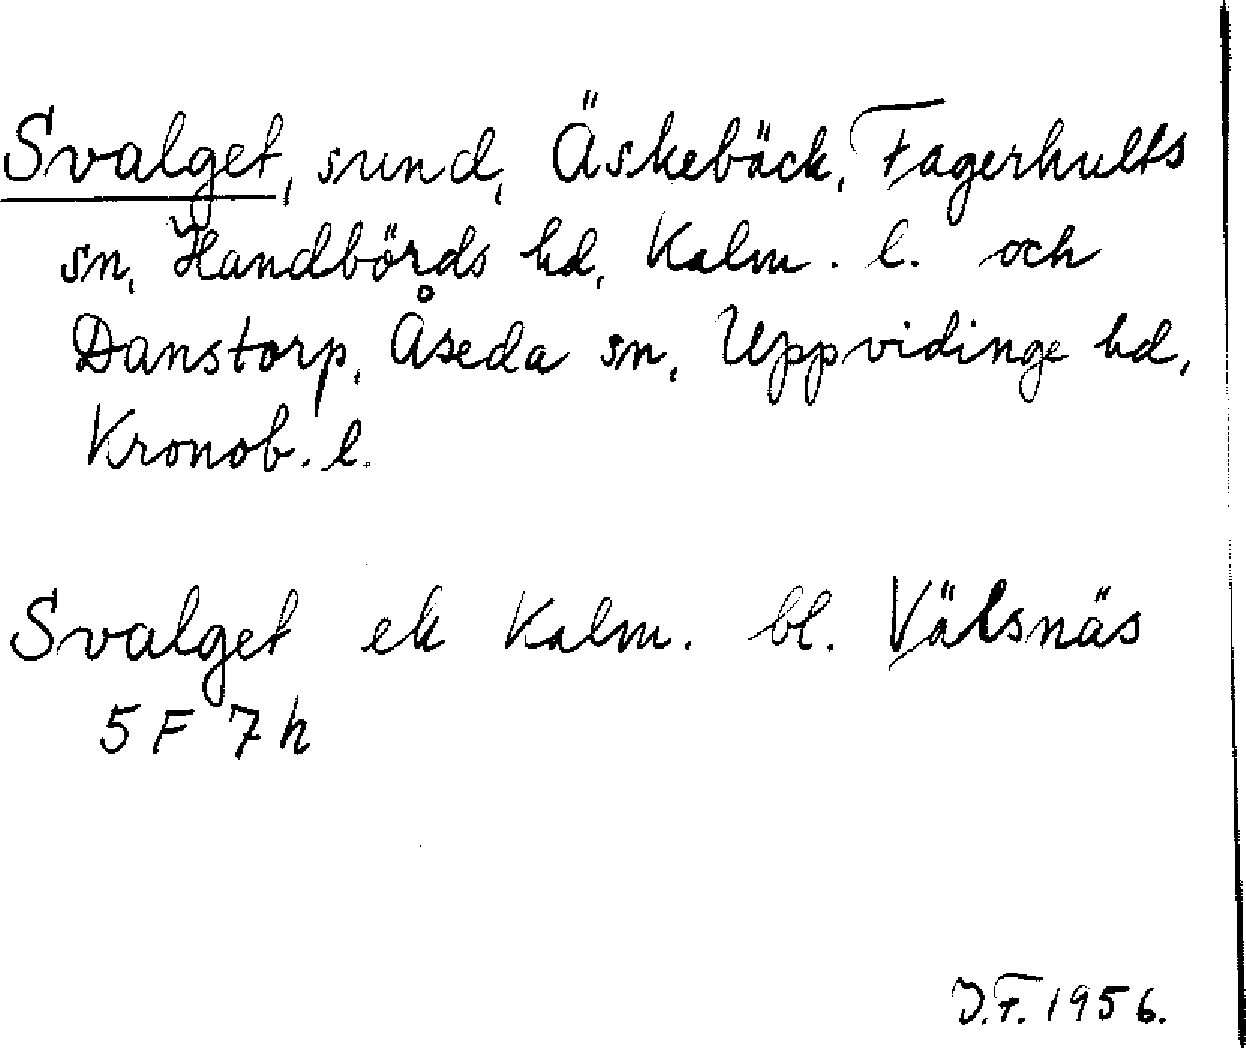 Svalget, sund, Äskebäck, Fagerhults
sn, Handbörds hd, Kalm. l. och
Danstorp, Åseda sn, Uppvidinge hd,
Kronob. l.
Svalget ek Kalm. bl. Välsnäs
5 F 7 h
J.F. 1956.